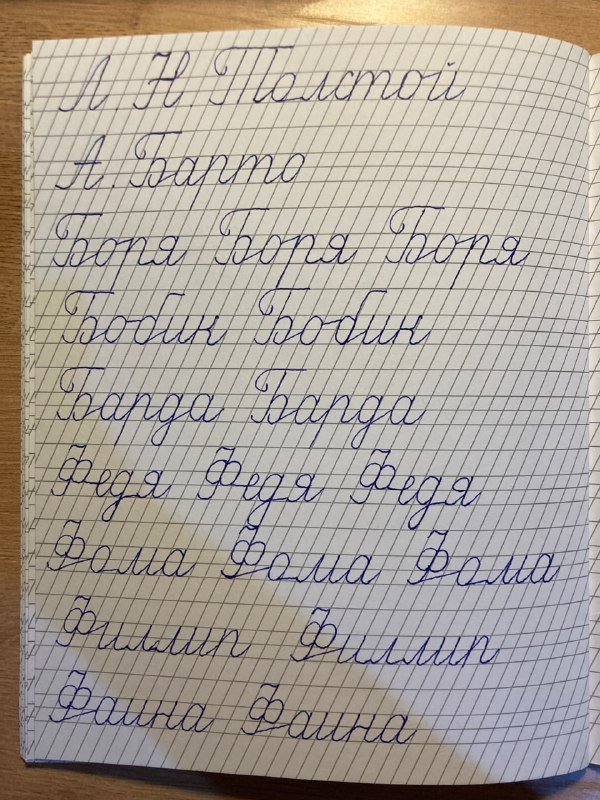 Л. Н. Толстой
А. Барто
Боря Боря Боря
Бобик Бобик
Барда Барда
Федя Федя Федя
Фома Фома Фома
Филлип Филлип
Фаина Фаина